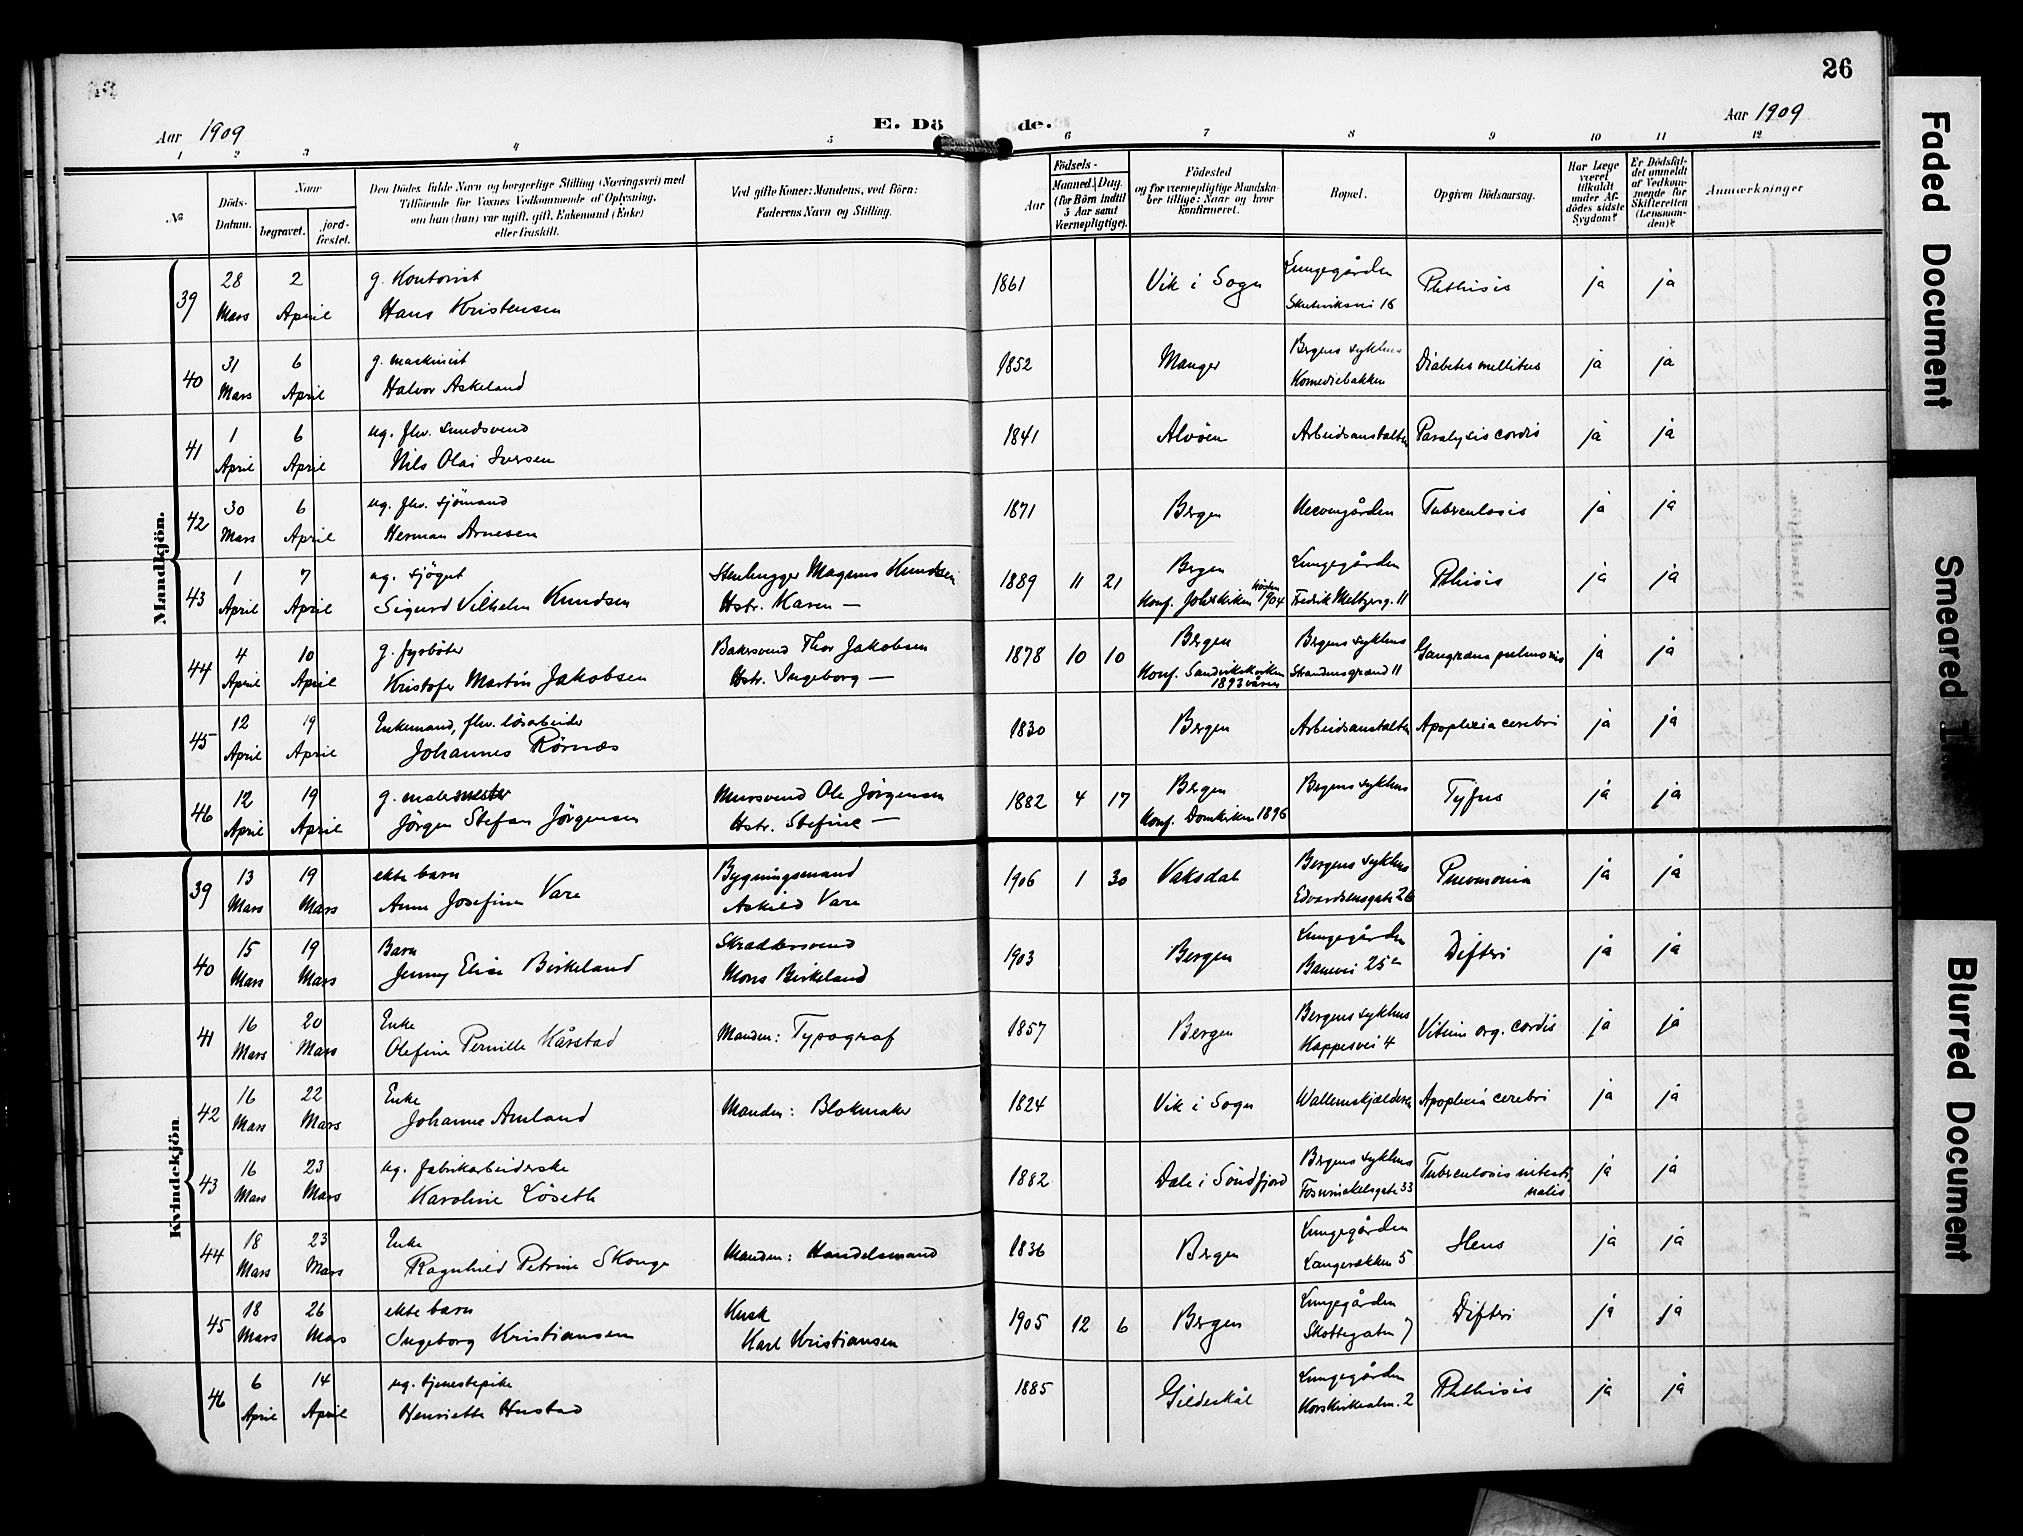 26
Aar 1909
E. Dö
de.
Aar 1909
1 2 3 4 5 6 7 8 9 10 11 12
No
Döds-
Datum.
Naar
begravet.
jord-
fæstet.
Den Dödes fulde Navn og borgerlige Stilling (Næringsvei) med
Tilföiende for Voxnes Vedkommende af Oplysning,
om han (hun) var ugift, gift, Enkemand (Enke)
eller fraskilt.
Ved gifte Koner: Mandens, ved Börn:
Faderens Navn og Stilling.
Födsels-
Aar
Maaned. Dag.
(for Börn indtil
5 Aar samt
Værnepligtige).
Födested
og for værnepligtige Mandska-
ber tillige: Naar og hvor
konfirmeret.
Bopæl.
Opgiven Dödsaarsag.
Har Læge
været
tilkaldt
under Af-
dödes sidste
Sygdom?
Er Dödsfal-
det anmeldt
af Vedkom-
mende for
Skifteretten
(Lensman-
den)?
Anmærkninger
Mandkjön.
39 28 Mars 2 April g. Kontorist
Hans Kristensen
1861 Vik i Sogn Lungegården
Skuteviksvei 16 Phthisis ja ja
40 31 Mars 6 April g. maskinist
Halvor Askeland
1852 Manger Bergens sykhus
Komediebakken Diabetes mellitus ja ja
41 1 April 6 April ug. fhv. smedsvend
Nils Olai Iversen
1841 Alvöen Arbeidsanstalten Paralysis cordis ja ja
42 30 Mars 6 April ug. fhv. sjömand
Herman Arnesen
1871 Bergen Tuberculosis ja ja
43 1 April 7 April ug. sjögut
Sigurd Vilhelm Knudsen
Stenhugger Magnus Knudsen
Hstr. Karen —
1889 11 21 Bergen
Konf. Johskirken hösten 1904
Lungegården
Fredrik Meltzersg. 11 Pthisis ja ja
44 4 April 10 April g. fyrböter
Kristofer Martin Jakobsen
Bakersvend Thor Jakobsen
Hstr. Ingeborg —
1878 10 10 Bergen
Konf. Sandvikskirken
1893 våren
Bergens sykhus
Strandensgrand 11 Gangræna pulmonis ja ja
45 12 April 19 April Enkemand, fhv. lösarbeider
Johannes Rørnæs
1830 Bergen Arbeidsanstalten Apoplexia cerebri ja ja
46 12 April 19 April g. malermester
Jörgen Stefan Jörgensen
Mursvend Ole Jörgensen
Hstr. Stefine —
1882 4 17 Bergen
Konf. Domkirken 1896
Bergens sykhus Tyfus ja ja
Kvindekjön
39 13 Mars 19 Mars ekte barn
Anna Josefine Vare
Bygningsmand
Askild Vare
1906 1 30 Vaksdal Bergens sykhus
Edvardsensgate 26 Pneumonia ja ja
40 15 Mars 19 Mars Barn
Jenny Elise Birkeland
Skræddersvend
Mons Birkeland
1903 Bergen Lungegården
Banevei 25 a Difteri ja ja
41 16 Mars 20 Mars Enke
Olefine Pernille Kårstad
Manden: Typograf
1857 Bergen Bergens sykhus
Kappesvei 4 Vitium org. cordis ja ja
42 16 Mars 22 Mars Enke
Johanne Amland
Manden: Blokmaker
1824 Vik i Sogn Wallemskjælderen Apoplexia cerebri ja ja
43 16 Mars 23 Mars ug. fabrikarbeiderske
Karoline Löseth
1882 Dale i Söndfjord Bergens sykhus
Fosswinckelsgate 33 Tuberculosis intesti-
nalis ja ja
44 18 Mars 23 Mars Enke
Ragnhild Petrine Skouge
Manden: Handelsmand
1836 Bergen Lungegården
Langerækken 5 Ileus ja ja
45 18 Mars 26 Mars ekte barn
Ingeborg Kristiansen
Kusk
Karl Kristiansen
1905 12 6 Bergen Lungegården
Skottegaten 7 Difteri ja ja
46 6 April 14 April ug. tjenestepike
Henriette Hustad
1885 Gildeskål Lungegården
Korskirkealm. 2 Phthisis ja ja
Faded Document
Smeared
Blurred Document